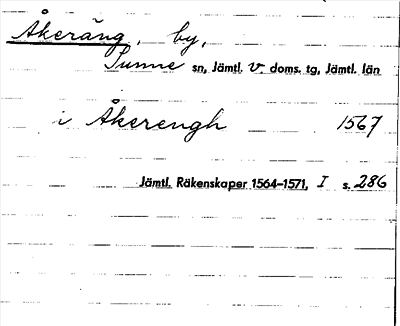 Åkeräng, by,
Sunne sn, Jämtl. v. doms. tg, Jämtl. län
i Åkerengh 1567
Jämtl. Räkenskaper 1564-1571, I s. 286